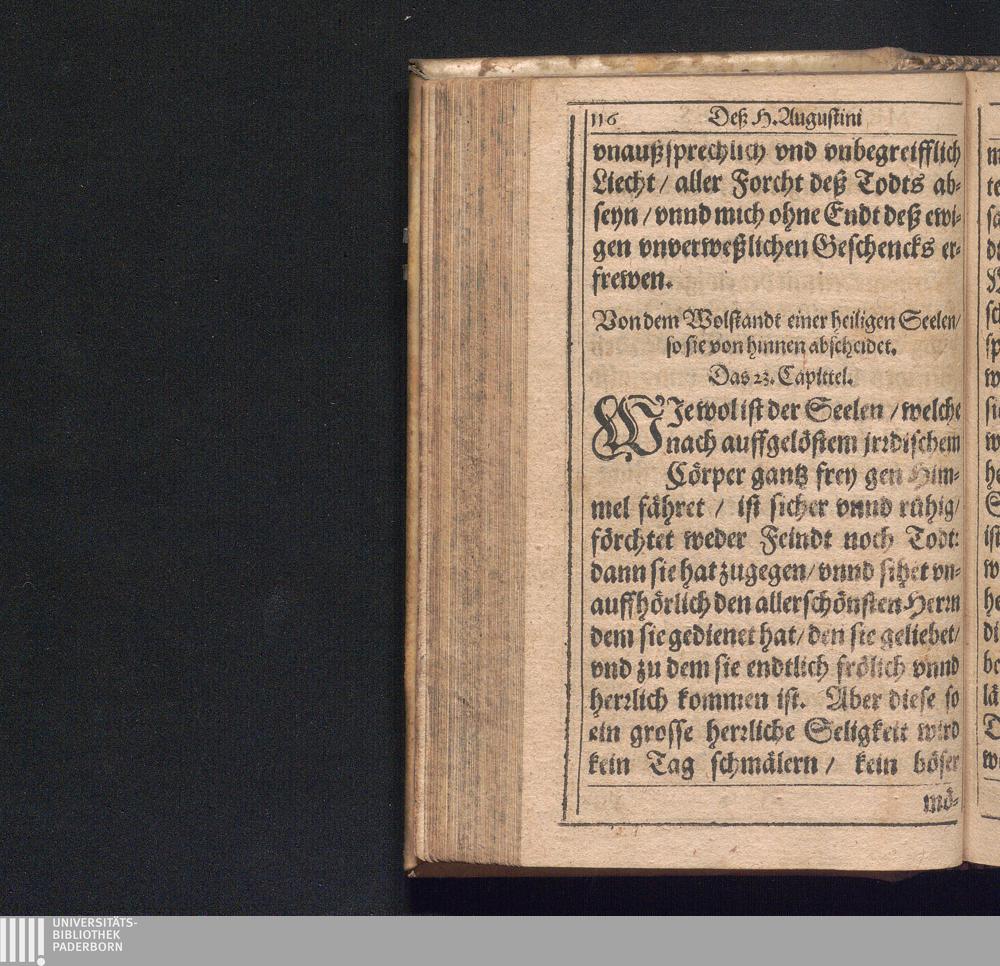 116 Deß H. Augustini
vnaußsprechlich vnd vnbegreifflich
Liecht / aller Forcht deß Todts ab-
seyn / vnnd mich ohne Endt deß ewi-
gen vnverweßlichen Geschencks er-
frewen.
Von dem Wolstandt einer heiligen Seelen/
so sie von hinnen abscheidet.
Das 23. Capittel.
WJe wol ist der Seelen / welche
nach auffgelöstem jrrdischem
Cörper gantz frey gen Him-
mel fähret / ist sicher vnnd rühig/
förchtet weder Feindt noch Todt:
dann sie hat zugegen/ vnnd sihet vn-
auffhörlich den allerschönsten Herrn
dem sie gedienet hat/ den sie geliebet/
vnd zu dem sie endtlich frölich vnnd
herrlich kommen ist. Aber diese so
ein grosse herrliche Seligkeit wird
kein Tag schmälern / kein böser
mö-
UNIVERSITÄTS-
BIBLIOTHEK
PADERBORN